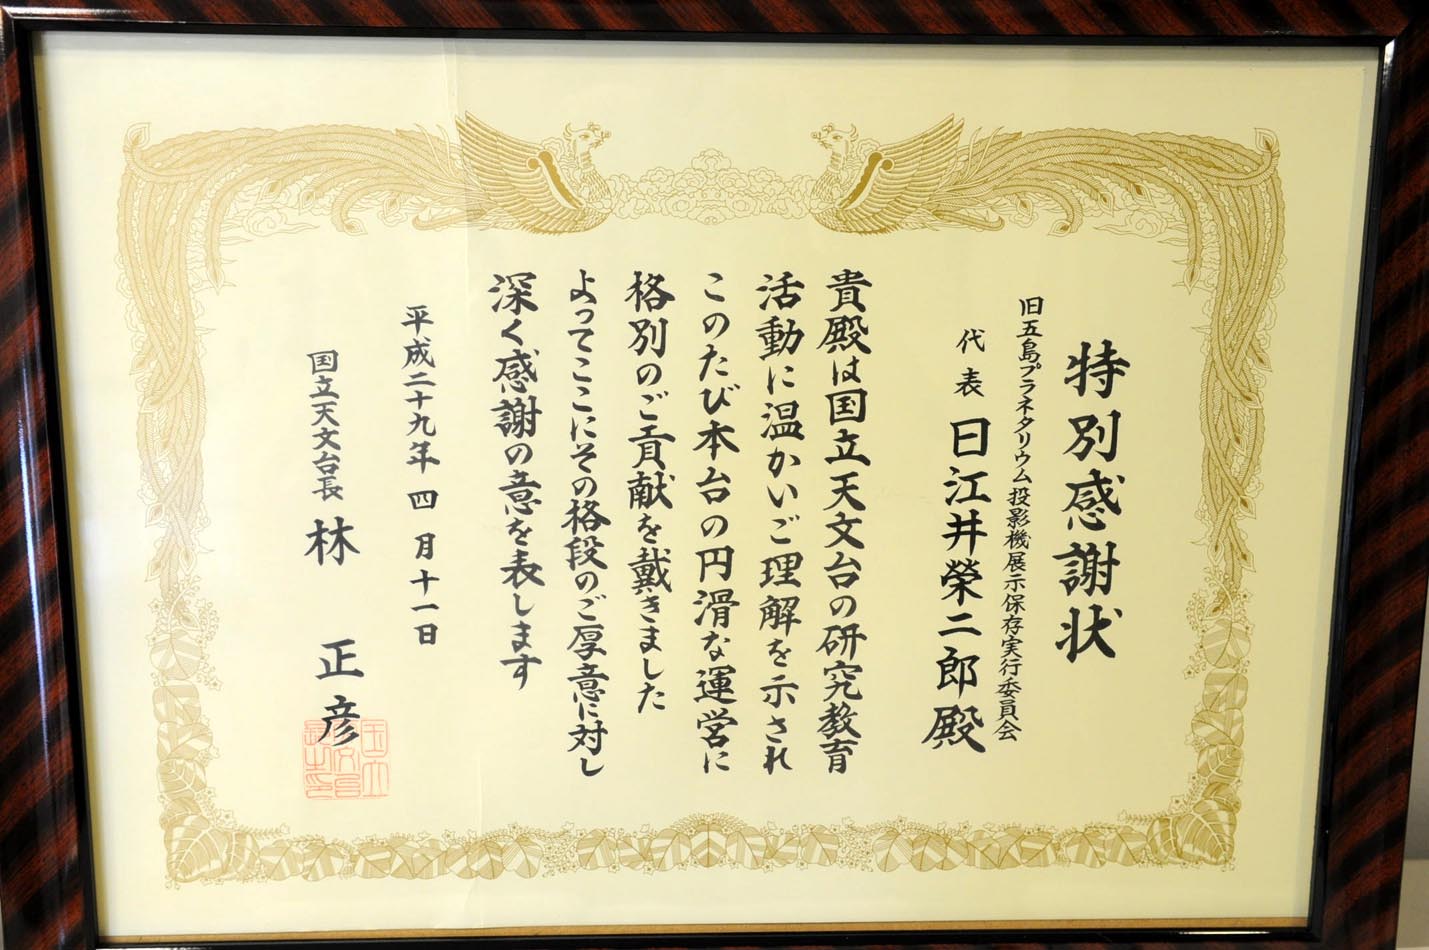 特別感謝状
旧五島プラネタリウム投影機展示保存実行委員会
代表 日江井榮二郎殿
貴殿は国立天文台の研究教育
活動に温かいご理解を示され
このたび本台の円滑な運営に
格別のご貢献を戴きました
よってここにその格段のご厚意に対し
深く感謝の意を表します
平成二十九年四月十一日
国立天文台長 林 正彦